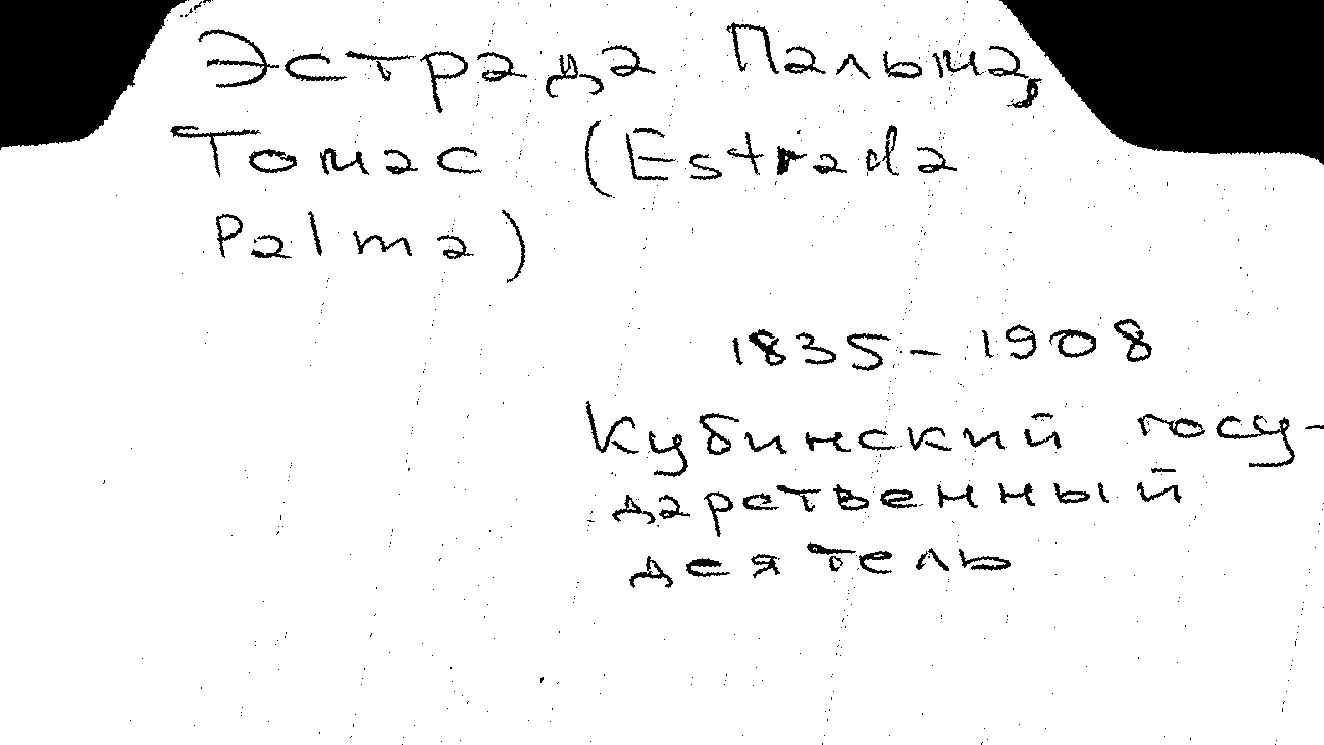 Эстрада Пальма,
Томас (Estrada
Palma)
1835-1908
Кубинский госу-
дарственный
деятель